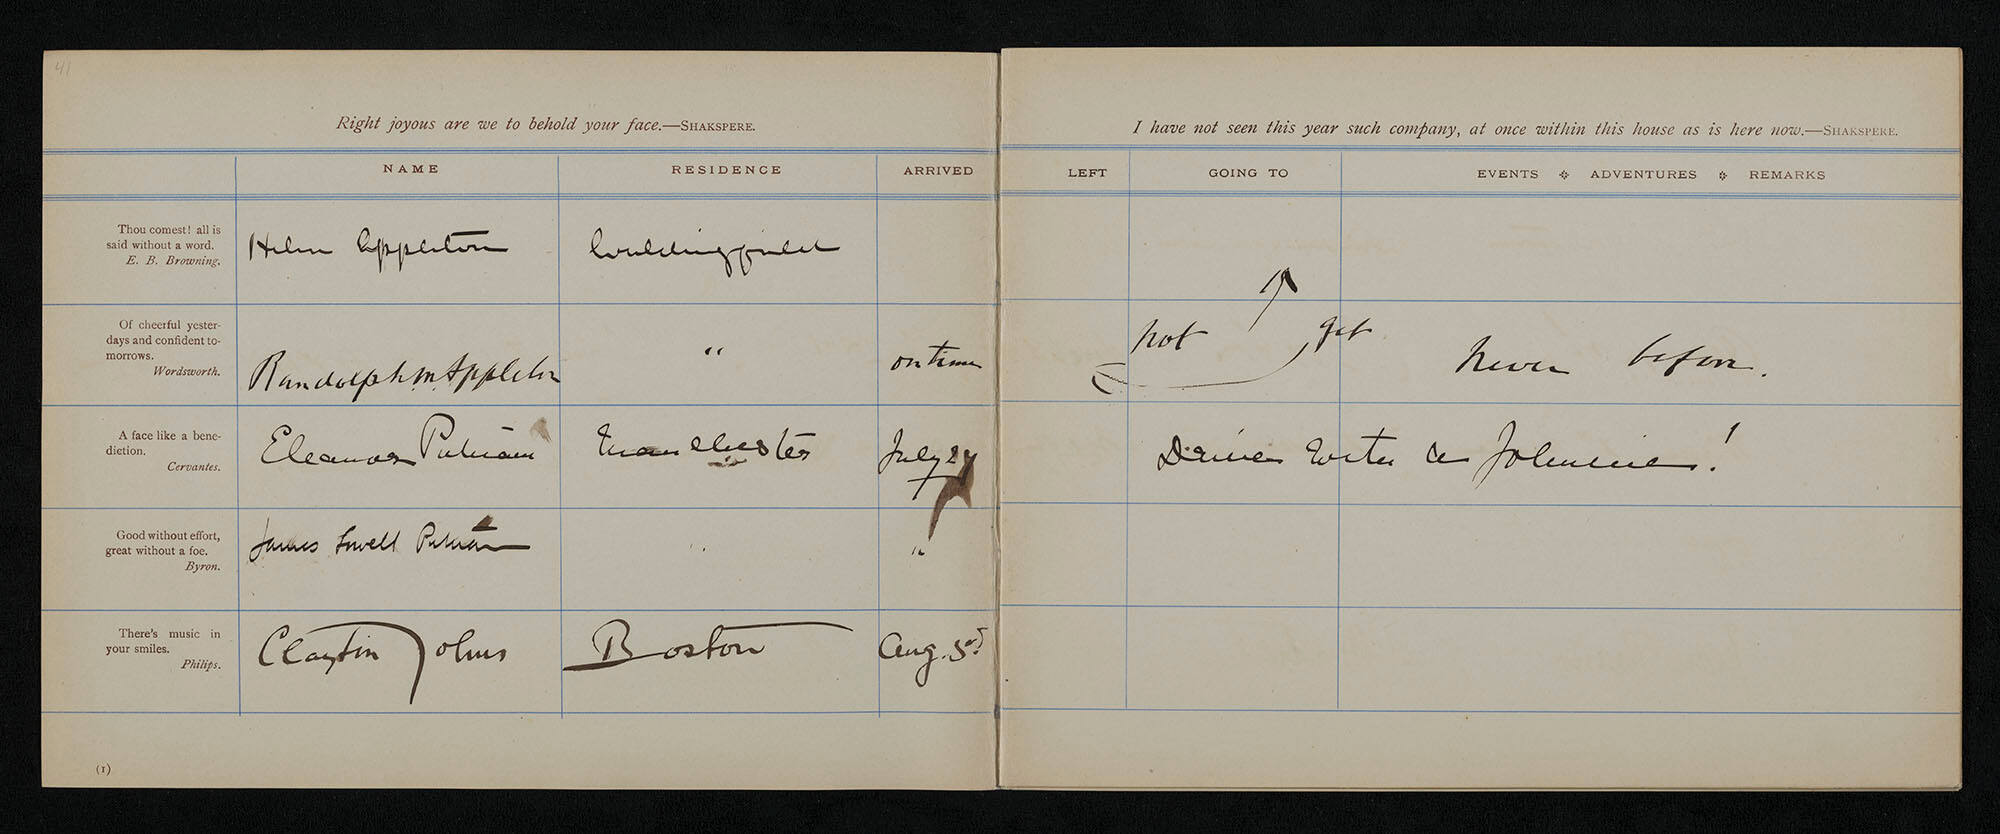 41
Right joyous are we to behold your face.—SHAKSPERE.
NAME RESIDENCE ARRIVED
Thou comest! all is
said without a word.
E. B. Browning.
Helen Appleton
Of cheerful yester-
days and confident to-
morrows.
Wordsworth.
Randolph M Appleton " on time
A face like a bene-
diction.
Cervantes.
Eleanor Putnam Manchester July 27
Good without effort,
great without a foe.
Byron.
James Lowell Putnam "
There's music in
your smiles.
Philips.
Clayton Johns Boston Aug. 3rd
(1)
I have not seen this year such company, at once within this house as is here now.—SHAKSPERE.
LEFT GOING TO EVENTS ADVENTURES REMARKS
not yet Never before.
Drive with